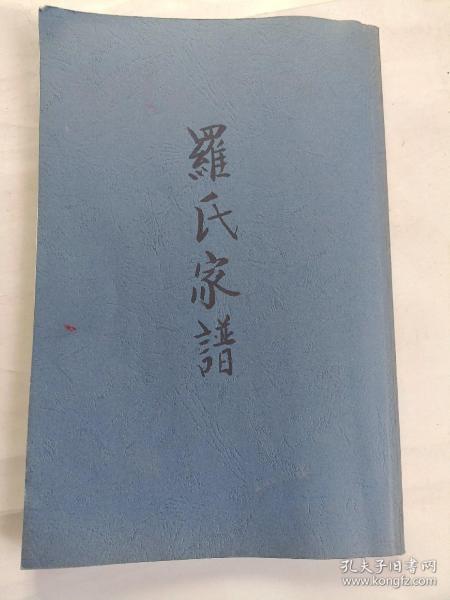 羅氏家譜
孔夫子旧书网
www.kongfz.com